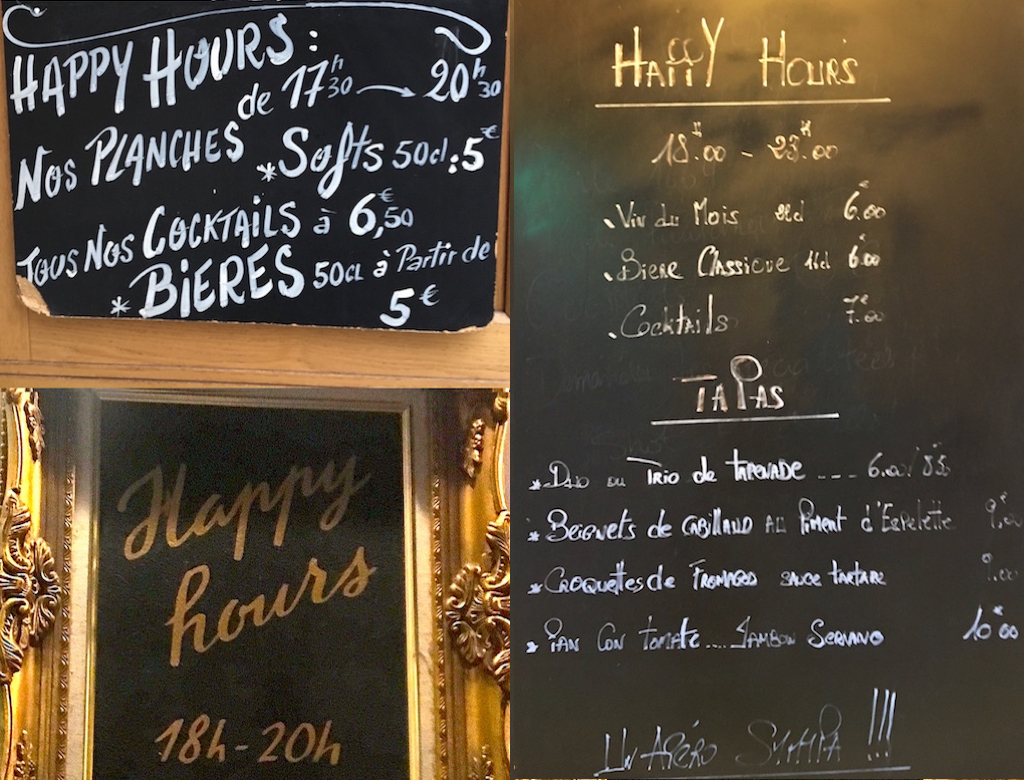 HAPPY HOURS :
de 17h30 → 20h30
NOS PLANCHES
*Softs 50cl : 5€
TOUS NOS COCKTAILS à 6€,50
* BIERES 50CL à Partir de
5€
Happy
hours
18h-20h
HAPPY HOURS
18H.00 - 23H.00
Vin du Mois 6.00€
Biere Classique 6.00€
Cocktails 7.00€
TAPAS
* DUO OU TRIO de TAPENADE ---- 6.00/8€
* BEIGNETS de CABILLAUD AU PIMENT d'Espelette 9.00€
* CROQUETTES de FROMAGES SAUCE TARTARE 9.00
* PAN CON TOMATE.... JAMBON SERRANO 10€00
UN APÉRO SYMPA !!!